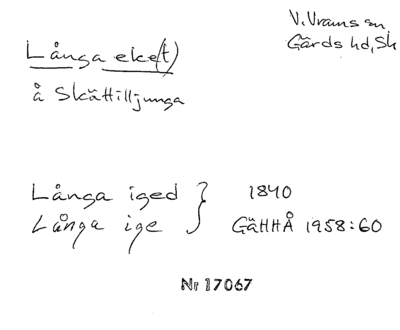 V. Vrams sn
Gärds hd, Sk
Långa eke(t)
å Skättilljunga
Långa iged } 1840
Långa ige } GäHHÅ 1958:60
Nr 17067